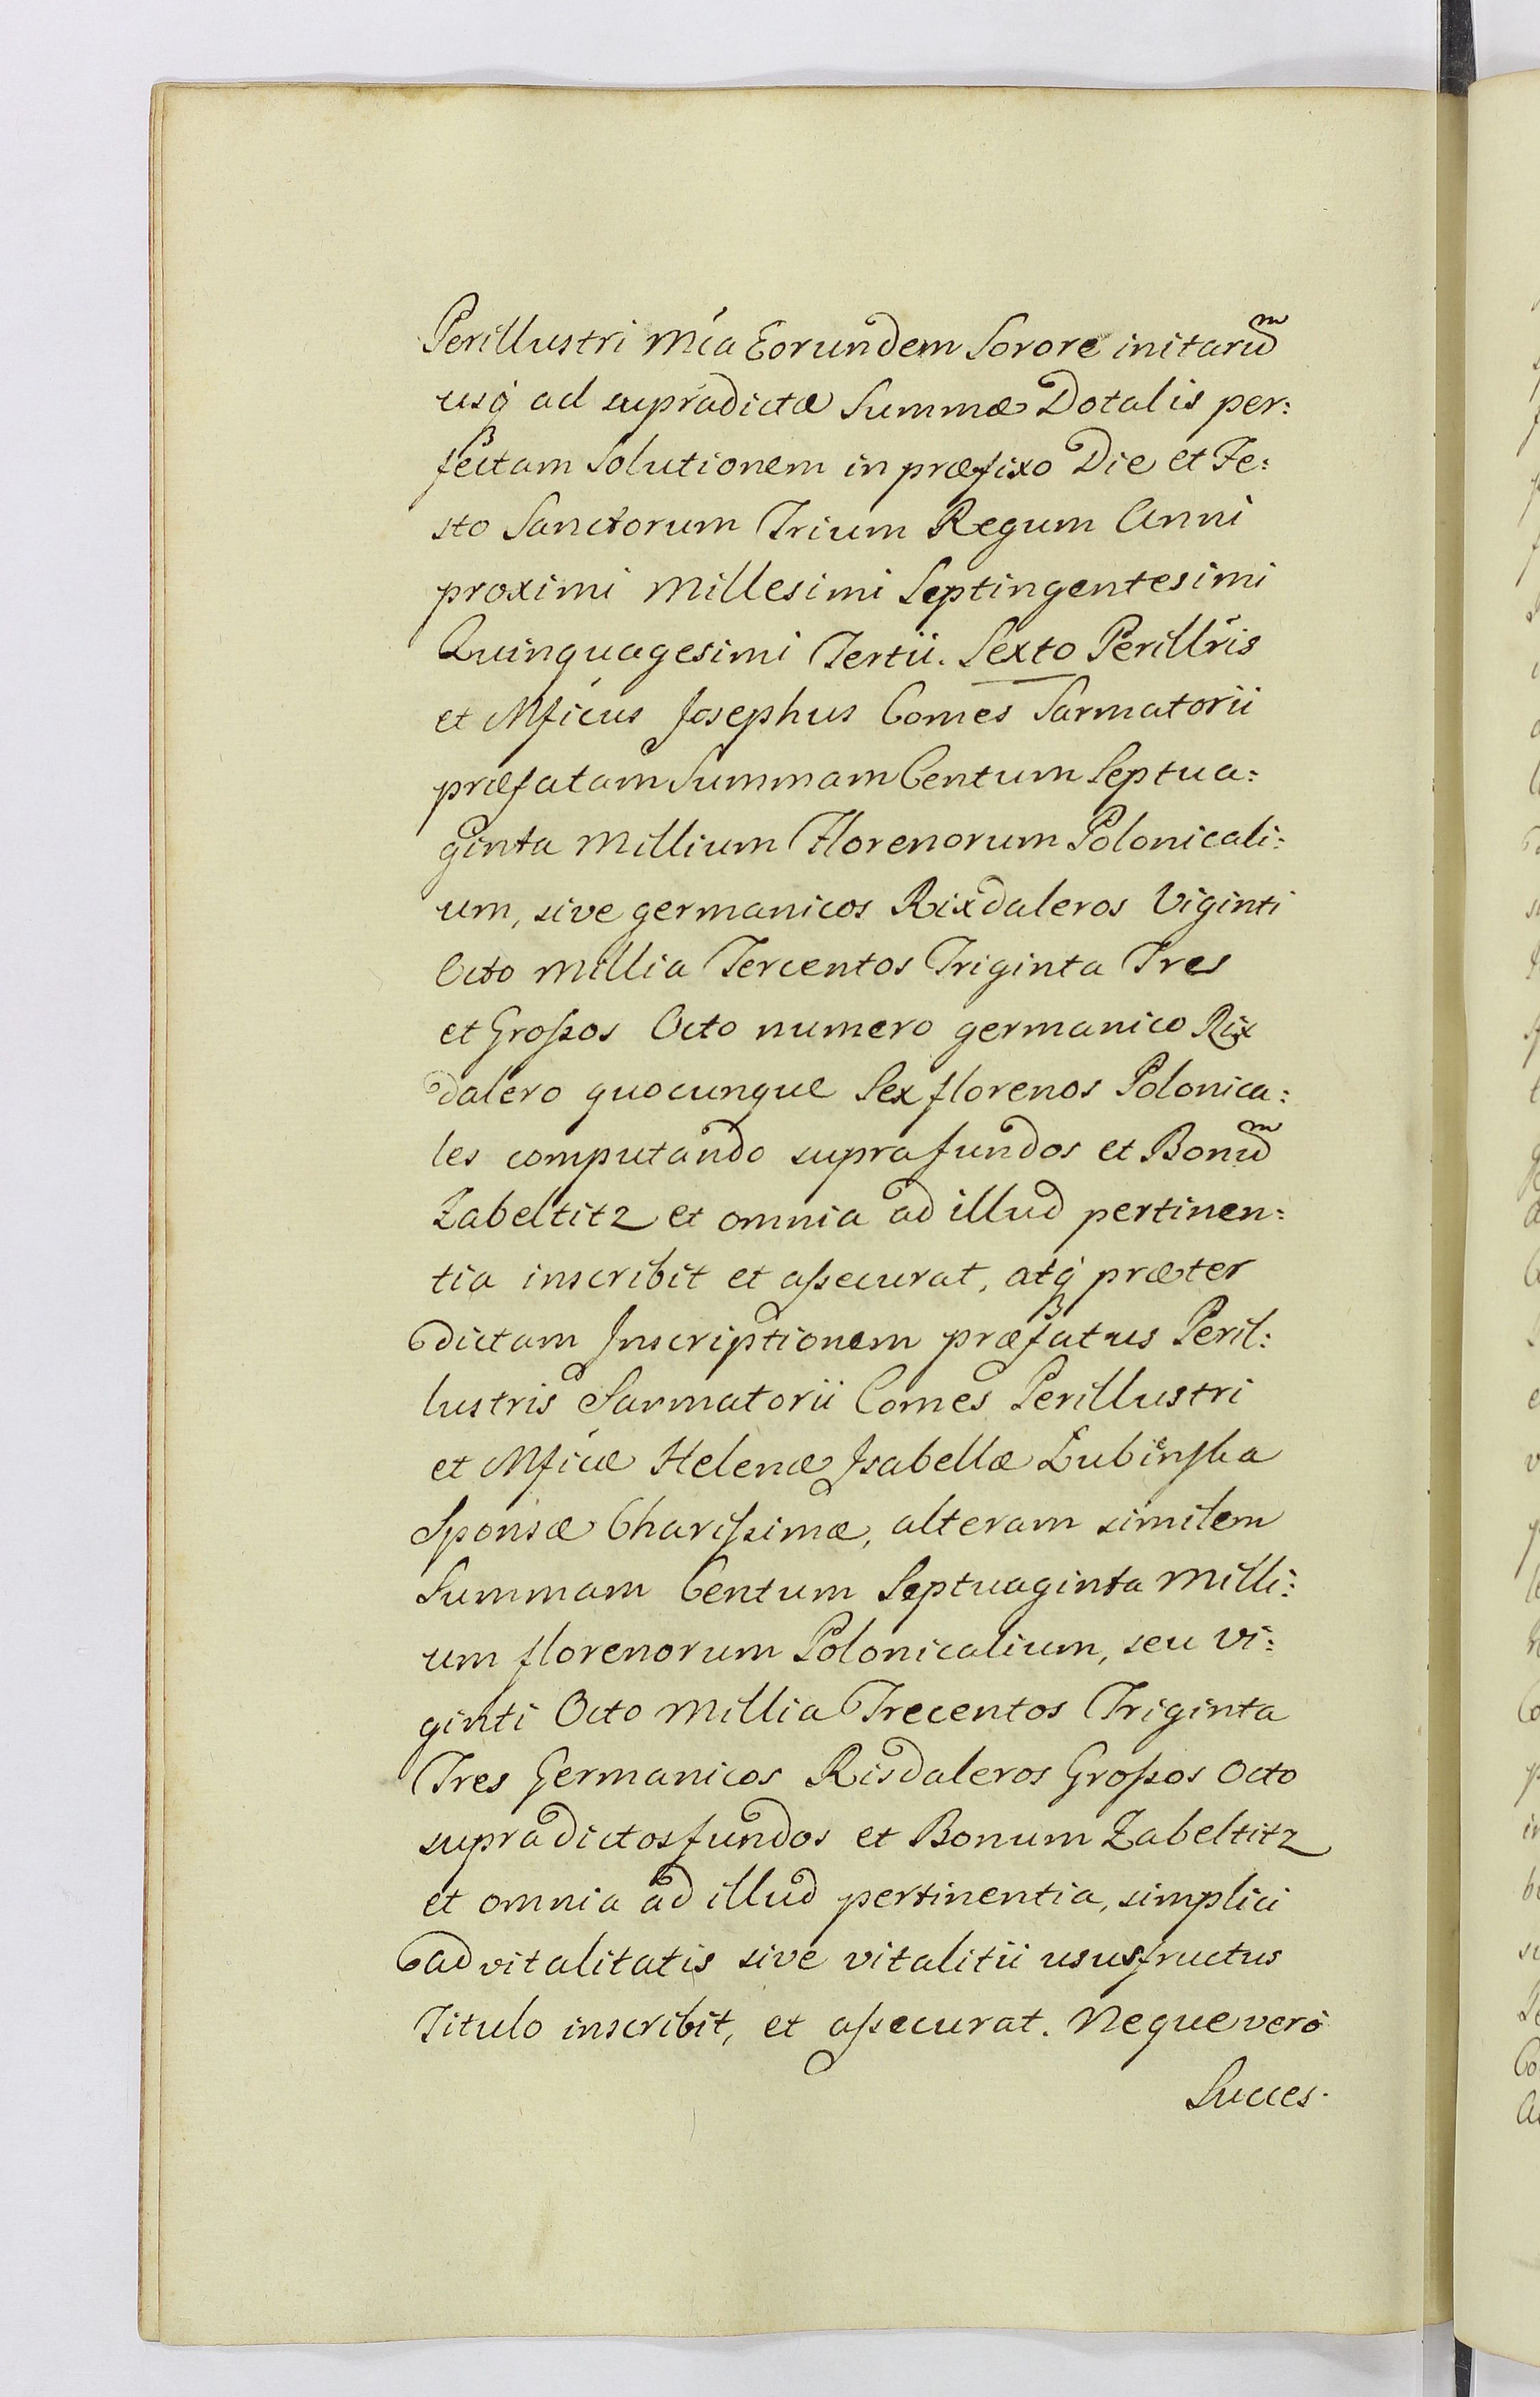 Perillustri Mía Eorundem Sorore initarum
usq́ ad supradictæ Summæ Dotalis per:
fectam Solutionem in præfixo Die et Fe:
sto Sanctorum Trium Regum Anni
proximi Millesimi Septingentesimi
Quinquagesimi Tertii. Sexto Perillŕis
et Mfícus Josephus Comes Sarmatorii
præfatam Summam Centum Septua:
ginta Millium Florenorum Polonicali:
um, sive germanicos Rixdaleros Viginti
Octo Millia Tercentos Triginta Tres
et Großos Octo numero germanico Rix
dalero quocunque Sex florenos Polonica:
les computando supra fundos et Bonum
Zabeltitz et omnia ad illud pertinen:
tia inscribit et aßecurat, atq́ præter
dictam Inscriptionem præfatus Peril:
lustris Sarmatorii Comes Perillustri
et Mfícæ Helenæ Isabellæ Lubienska
Sponsæ Charißimæ, alteram similem
Summam Centum Septuaginta Milli:
um florenorum Polonicalium, seu vi:
ginti Octo Millia Trecentos Triginta
Tres Germanicos Risdaleros Großos Octo
supradictos fundos et Bonum Zabeltitz
et omnia ad illud pertinentia, simplici
advitalitatis sive vitalitii ususfructus
Titulo inscribit, et aßecurat. Neque verò
Succes.